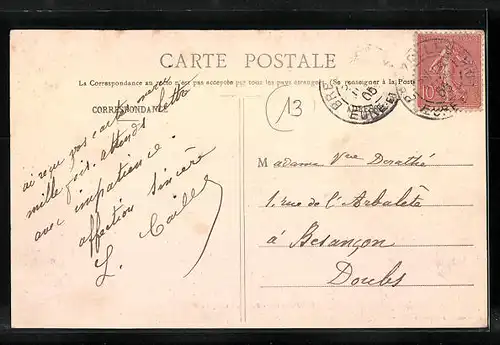 CARTE POSTALE
La Correspondance au recto n'est pas acceptée par tous les pays étrangers. (Se renseigner à la Poste
CORRESPONDANCE
13
ai reçu vos cartes merci
mille fois. attends lettre
avec impatience.
affection sincère
L. Caille
10
M adame Vve Derathé
1. rue de l'Arbalète
à Besançon
Doubs